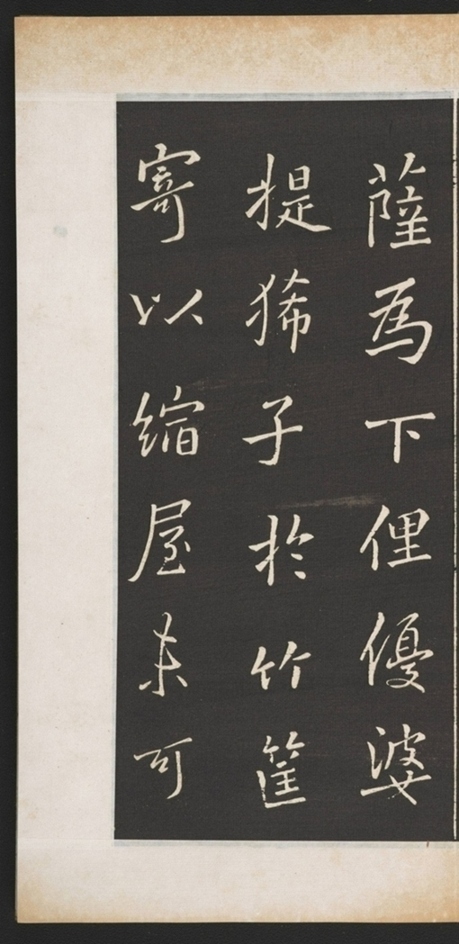 薩為下俚優婆
提狶子於竹筐
寄以縮屋未可